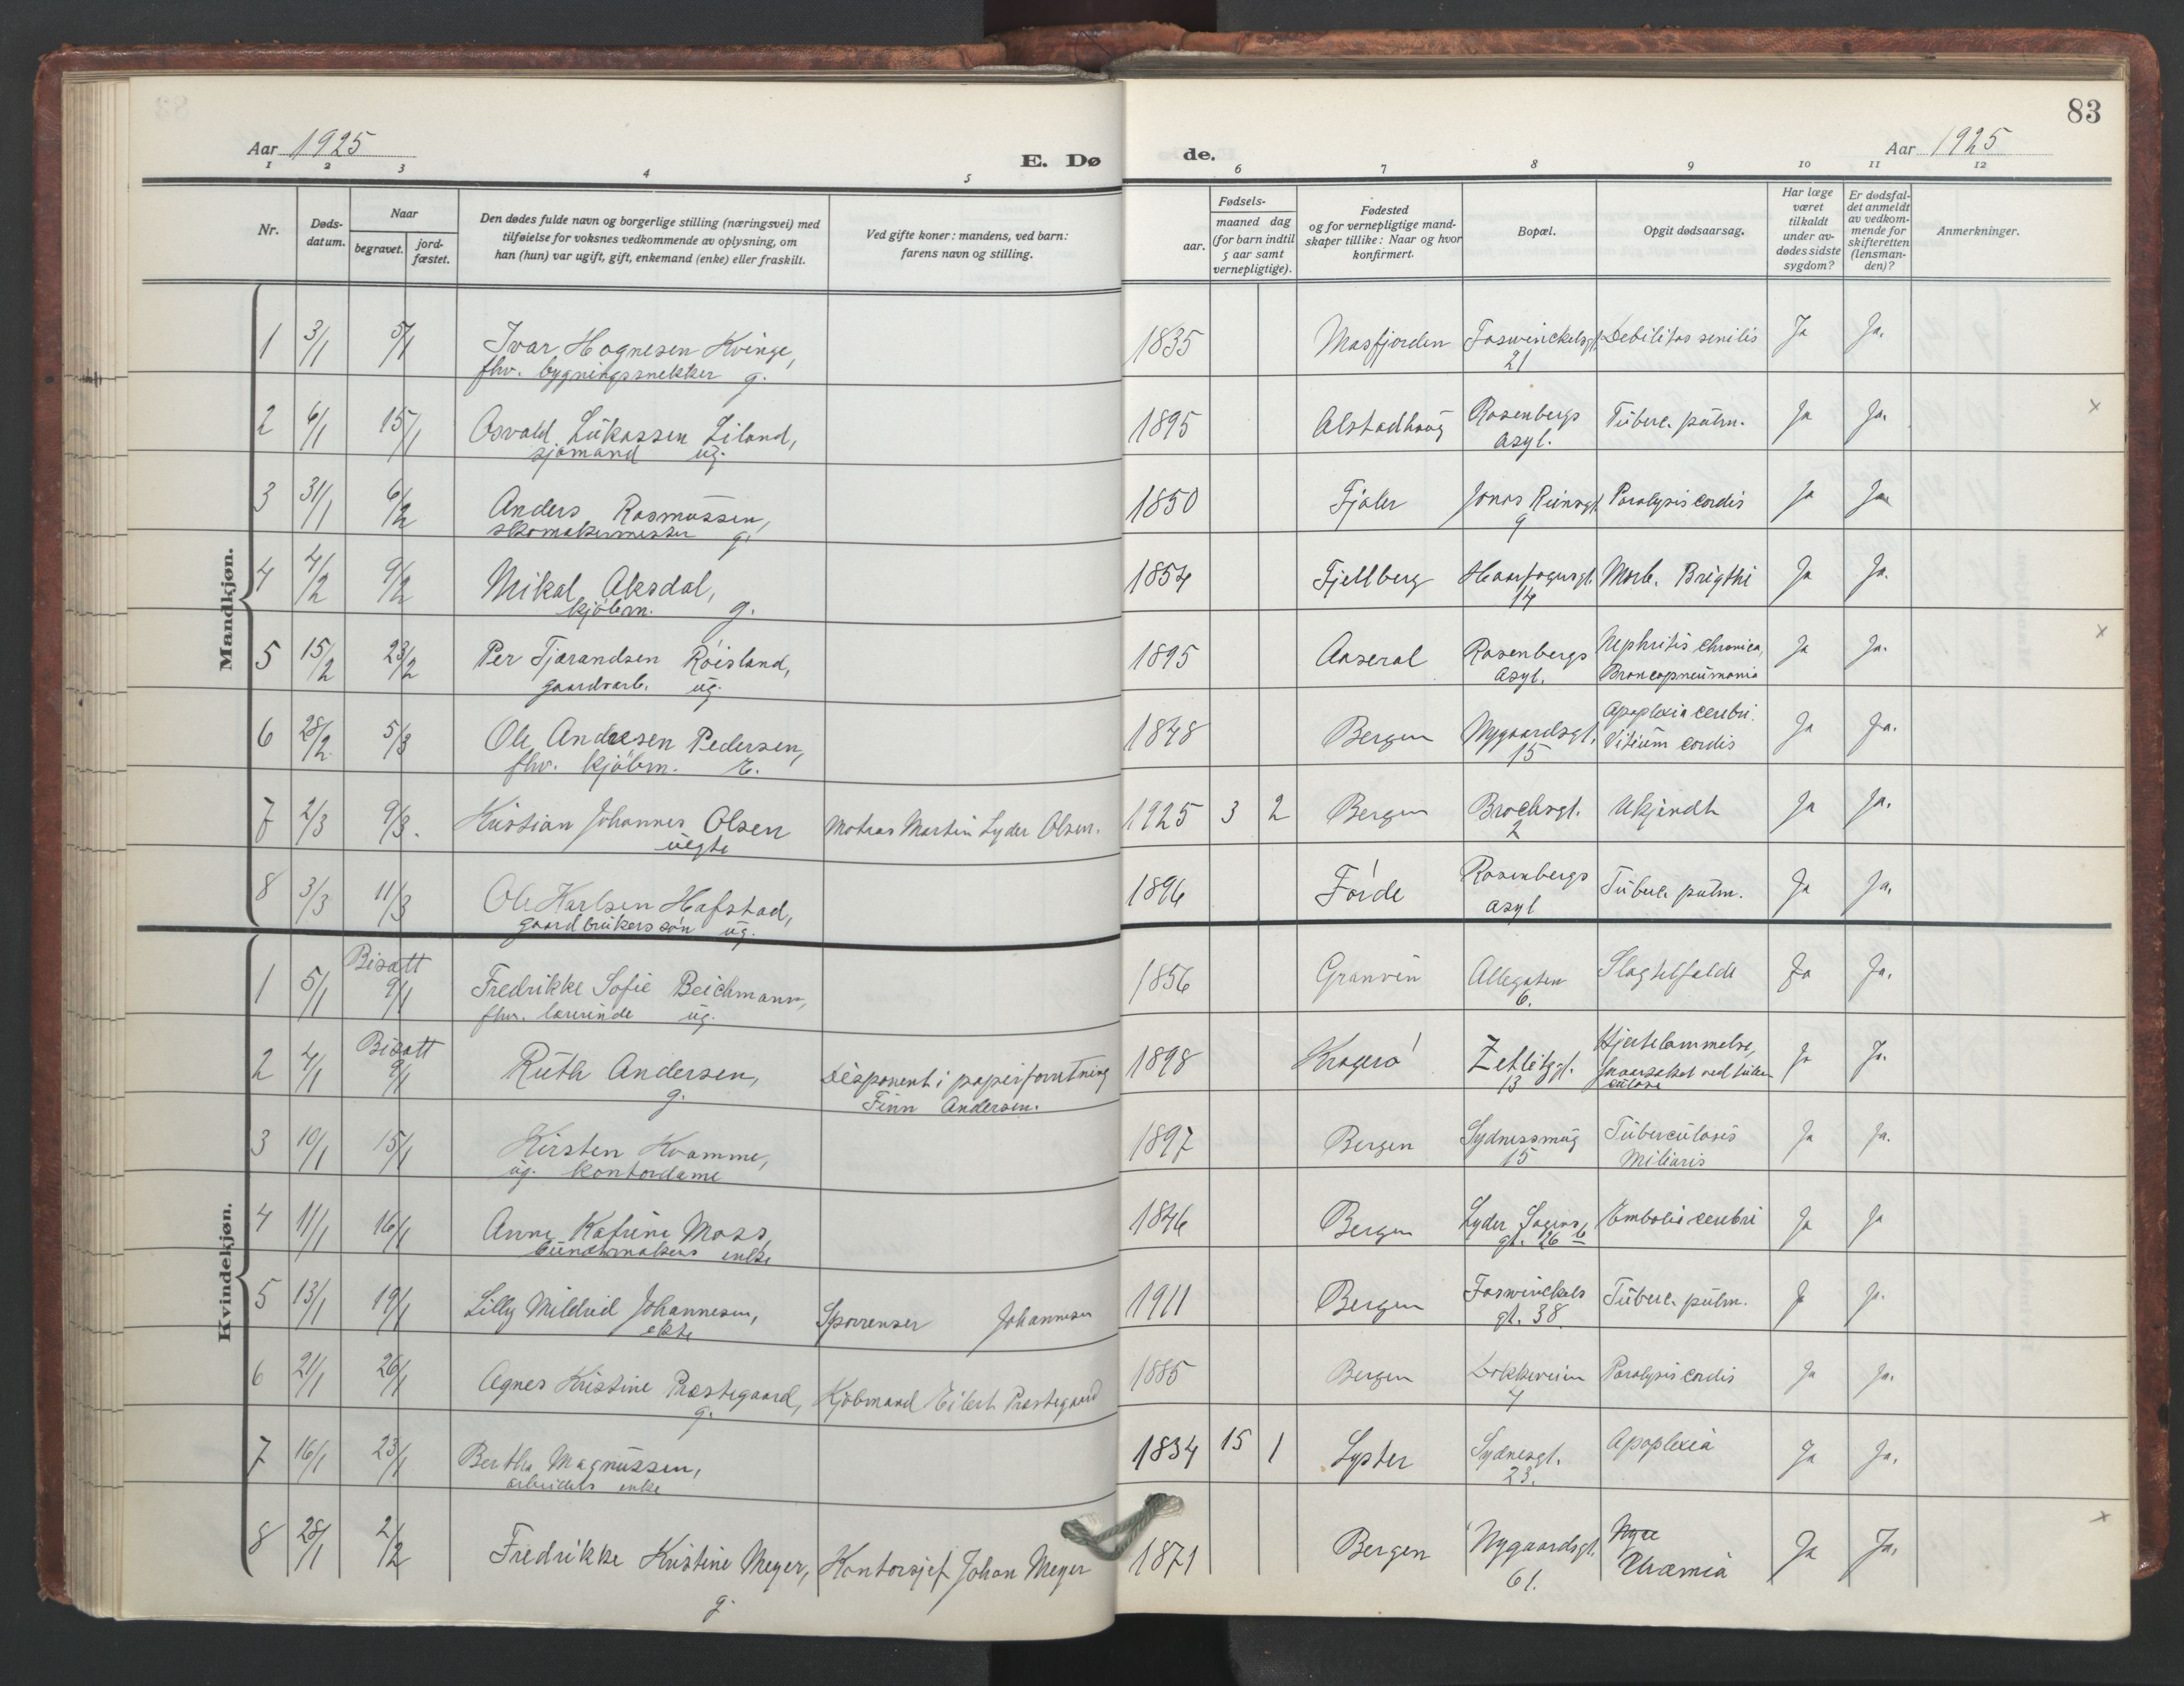 83
Aar 1925
E. Dø
de.
Aar 1925
1 2 3 4 5 6 7 8 9 10 11 12
Nr.
Døds-
datum.
Naar
begravet.
jord-
fæstet.
Den dødes fulde navn og borgerlige stilling (næringsvei) med
tilføielse for voksnes vedkommende av oplysning, om
han (hun) var ugift, gift, enkemand (enke) eller fraskilt.
Ved gifte koner: mandens, ved barn:
farens navn og stilling.
Fødsels-
aar.
maaned dag
(for barn indtil
5 aar samt
vernepligtige).
Fødested
og for vernepligtige mand-
skaper tillike: Naar og hvor
konfirmert.
Bopæl.
Opgit dødsaarsag.
Har læge
været
tilkaldt
under av-
dødes sidste
sygdom?
Er dødsfal-
det anmeldt
av vedkom-
mende for
skifteretten
(lensman-
den)?
Anmerkninger.
Mandkjøn.
1 3/1 5/1 Ivar Hognesen Kvinge, 1835 Masfjorden Foswinckelsgt. Debilitas senilis Ja Ja.
fhv. bygningssnekker g. 21
2 6/1 15/1 Osvald Lukassen Liland, 1895 Alstadhaug Rosenbergs Tuberc. pulm. Ja Ja. x
sjømand ug. Asyl.
3 31/1 6/2 Anders Rasmussen, 1850 Fjaler Jonas Reinsgt. Paralysis cordis Ja Ja
skomakermester g. 9
4 4/2 9/2 Mikal Aksdal, 1854 Fjellberg Haarfagersgt. Morb. Brigthi Ja Ja.
kjøbm. g. 14
5 15/2 23/2 Per Tjærandsen Røisland, 1895 Aaseral Rosenbergs Nephritis chronica, Ja Ja. x
gaardsarb. ug. Asyl. Broncopneumonia
6 28/2 5/3 Ole Andresen Pedersen, 1848 Bergen Nygaardsgt. Apoplexia cerebri. Ja Ja.
fhv. kjøbm. E. 15 Vitium cordis
7 2/3 9/3. Kristian Johannes Olsen Matros Martin Lyder Olsen. 1925 3 2 Bergen Brochsgt. Ukjendt Ja Ja.
uegte 2
8 3/3 11/3 Ole Karlsen Hafstad, 1896 Førde Rosenbergs Tuberc. pulm. Ja Ja.
gaardbrukerssøn ug. Asyl
Kvindekjøn.
1 5/1 Bisatt 9/1 Fredrikke Sofie Beichmann, 1856 Granvin Allegaten Slagtilfælde Ja Ja.
fhv. lærerinde ug. 6.
2 4/1 Bisatt 9/1 Ruth Andersen, Disponent i papirforretning 1898 Kragerø Zetlitzgt. Hjertelammelse, Ja Ja.
g. Finn Andersen. 13 foraarsaket ved tuber
culose
3 10/1 15/1 Kirsten Kvamme, 1897 Bergen Sydnessmug Tuberculosis Ja Ja.
ug. kontordame 15 Miliaris
4 11/1 16/1 Anne Katrine Moss, 1846 Bergen Lyder Sagens Embolia cerebri Ja Ja
bundtmakers enke gt. 26 b
5 13/1 19/1 Lilly Mildrid Johannesen, Sporrenser Johannesen 1911 Bergen Foswinckels Tuberc. pulm. Ja Ja.
ekte gt. 38
6 21/1 26/1 Agnes Kristine Præstegaard, Kjøbmand Eilert Præstegaard 1885 Bergen Dokkeveien Paralysis cordis Ja Ja.
g. 4
7 16/1 23/1 Bertha Magnussen, 1834 15 1 Lyster Sydnesgt. Apoplexia Ja Ja.
arbeiders enke 23.
8 28/1 2/2 Fredrikke Kristine Meyer, Kontorsjef Johan Meyer 1871 Bergen Nygaardsgt. Nyre Ja Ja. x
g. 61. Uræmia